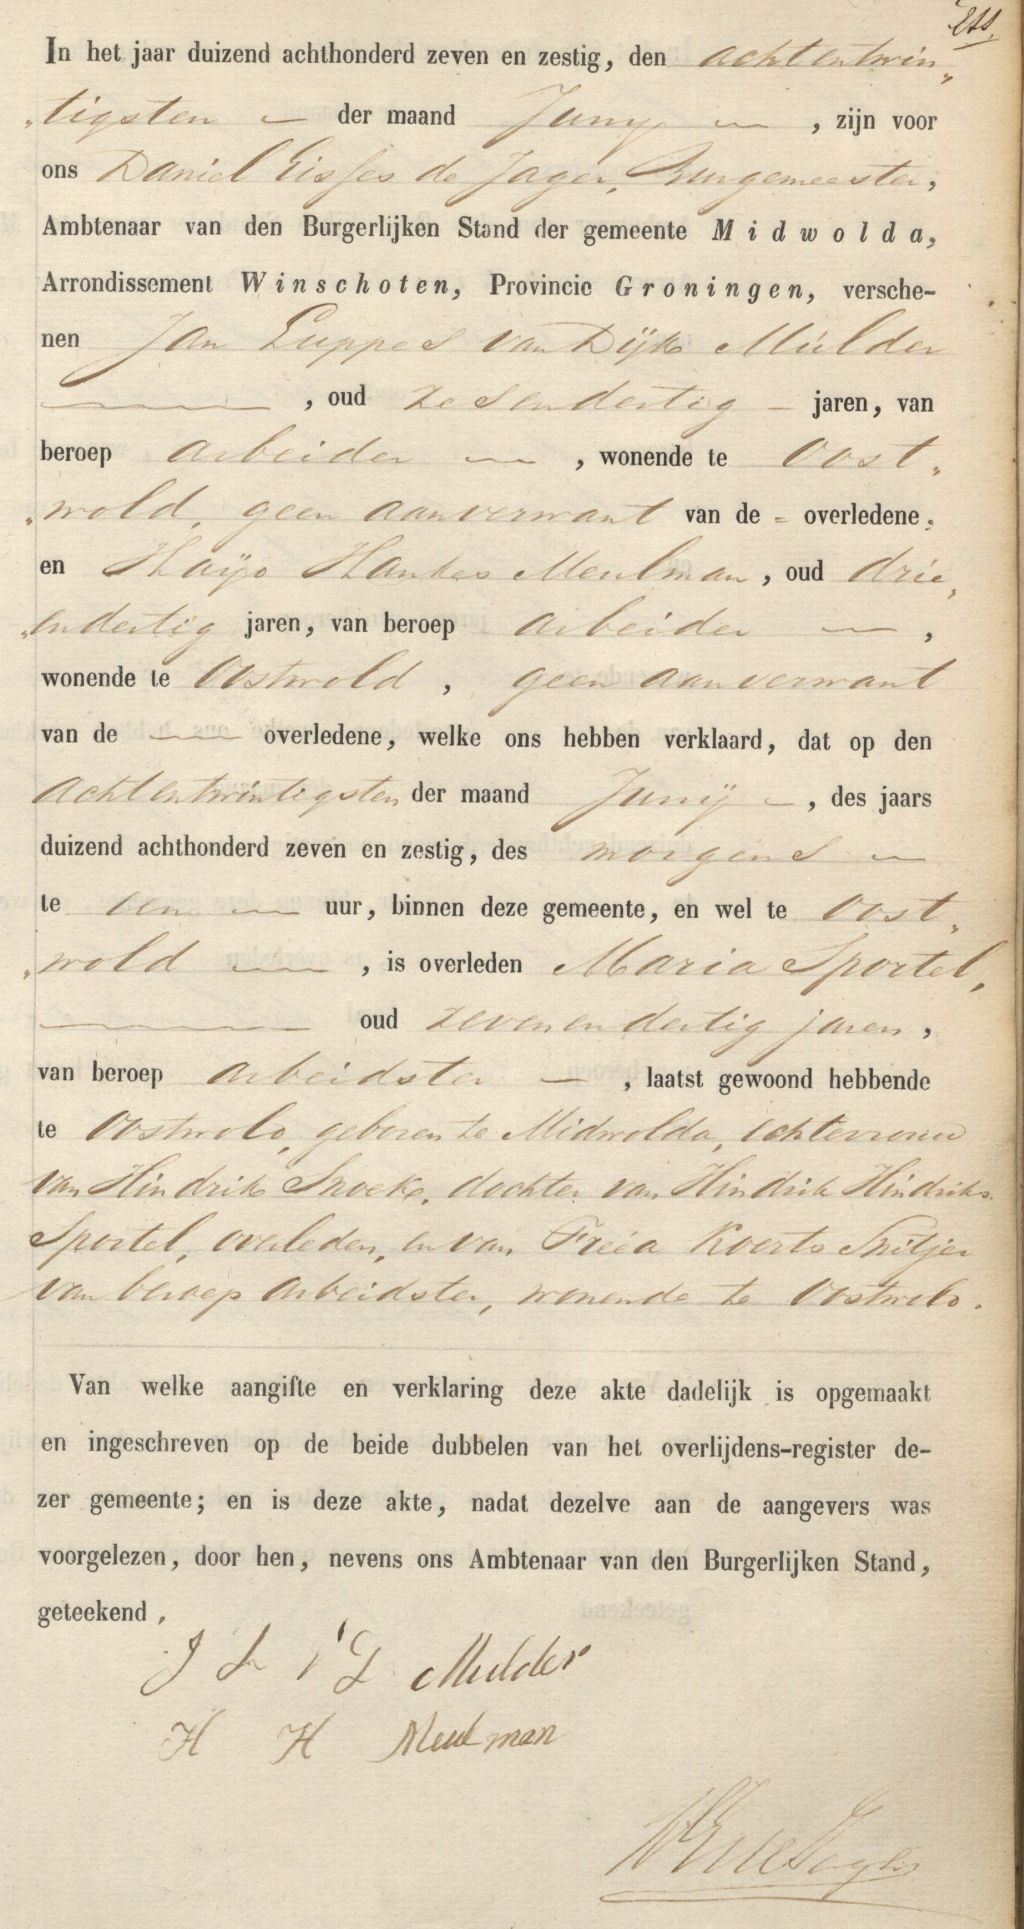 In het jaar duizend achthonderd zeven en zestig, den achtentwin„
„tigsten — der maand Junij —, zijn voor
ons Daniel Eisses de Jager, Burgemeester,
Ambtenaar van den Burgerlijken Stand der gemeente Midwolda,
Arrondissement Winschoten, Provincie Groningen, versche-
nen Jan Luppes van Dijk Mulder
—, oud zesendertig — jaren, van
beroep arbeider —, wonende te Oost„
„wold, geen aanverwant van de - overledene,
en Haijo Hankes Meulman, oud drie„
„endertig jaren, van beroep arbeider —,
wonende te Oostwold, geen aanverwant
van de — overledene, welke ons hebben verklaard, dat op den
achtentwintigsten der maand Junij —, des jaars
duizend achthonderd zeven en zestig, des morgens —
te een — uur, binnen deze gemeente, en wel te Oost„
„wold —, is overleden Maria Sportel,
— oud zevenendertig jaren,
van beroep arbeidster —, laatst gewoond hebbende
te Oostwold, geboren te Midwolda, echtevrouw
van Hindrik Snoek, dochter van Hindrik Hindriks
Sportel, overleden, en van Freèa Koerts Snitjer
van beroep arbeidster, wonende te Oostwold.
Van welke aangifte en verklaring deze akte dadelijk is opgemaakt
en ingeschreven op de beide dubbelen van het overlijdens-register de-
zer gemeente; en is deze akte, nadat dezelve aan de aangevers was
voorgelezen, door hen, nevens ons Ambtenaar van den Burgerlijken Stand,
geteekend.
J L v D Mulder
H H Meulman
DEdeJager